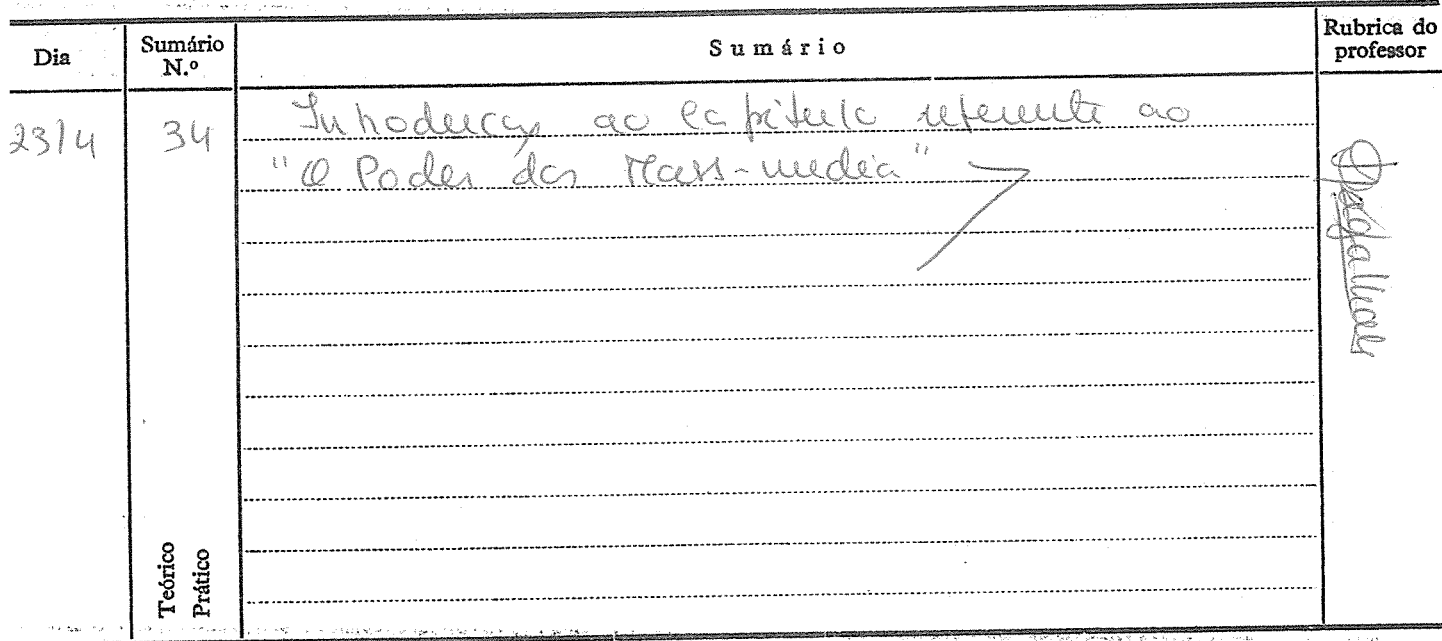 Dia Sumário N.º Sumário Rubrica do professor
23/4 34 Introdução ao capítulo referente ao
"O Poder dos Mass-media"
Teórico
Prático